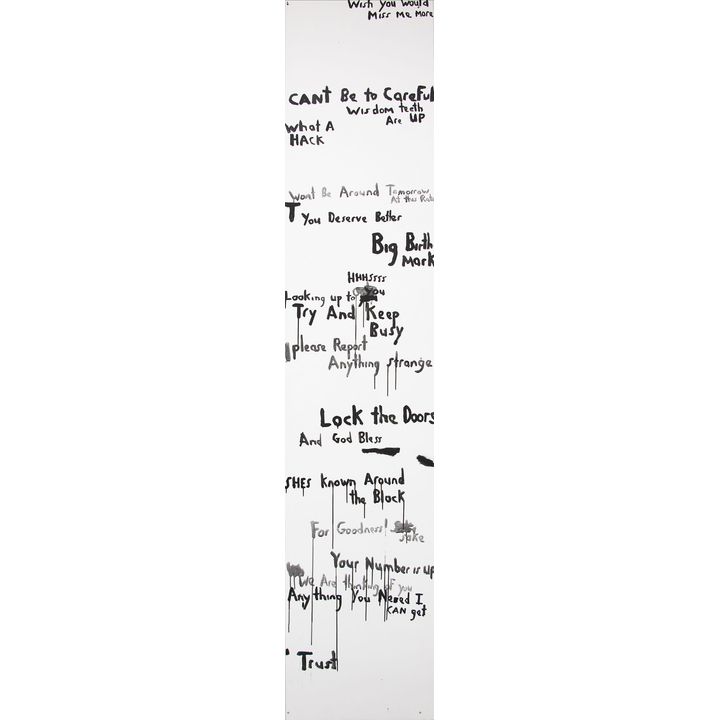 Wish You Would
Miss Me More
CANT Be to Careful
Wisdom teeth
Are UP
What A
HACK
Wont Be Around Tomorrow
At this Rate
T You Deserve Better
Big Birth
Mark
HHHSSSS
Looking up to you
Try And Keep
Busy
please Report
Anything strange
Lock the Doors
And God Bless
SHES Known Around
the Block
For Goodness!
sake
Your Number is up
We Are thinking of you
Anything You Need I
CAN get
Trust